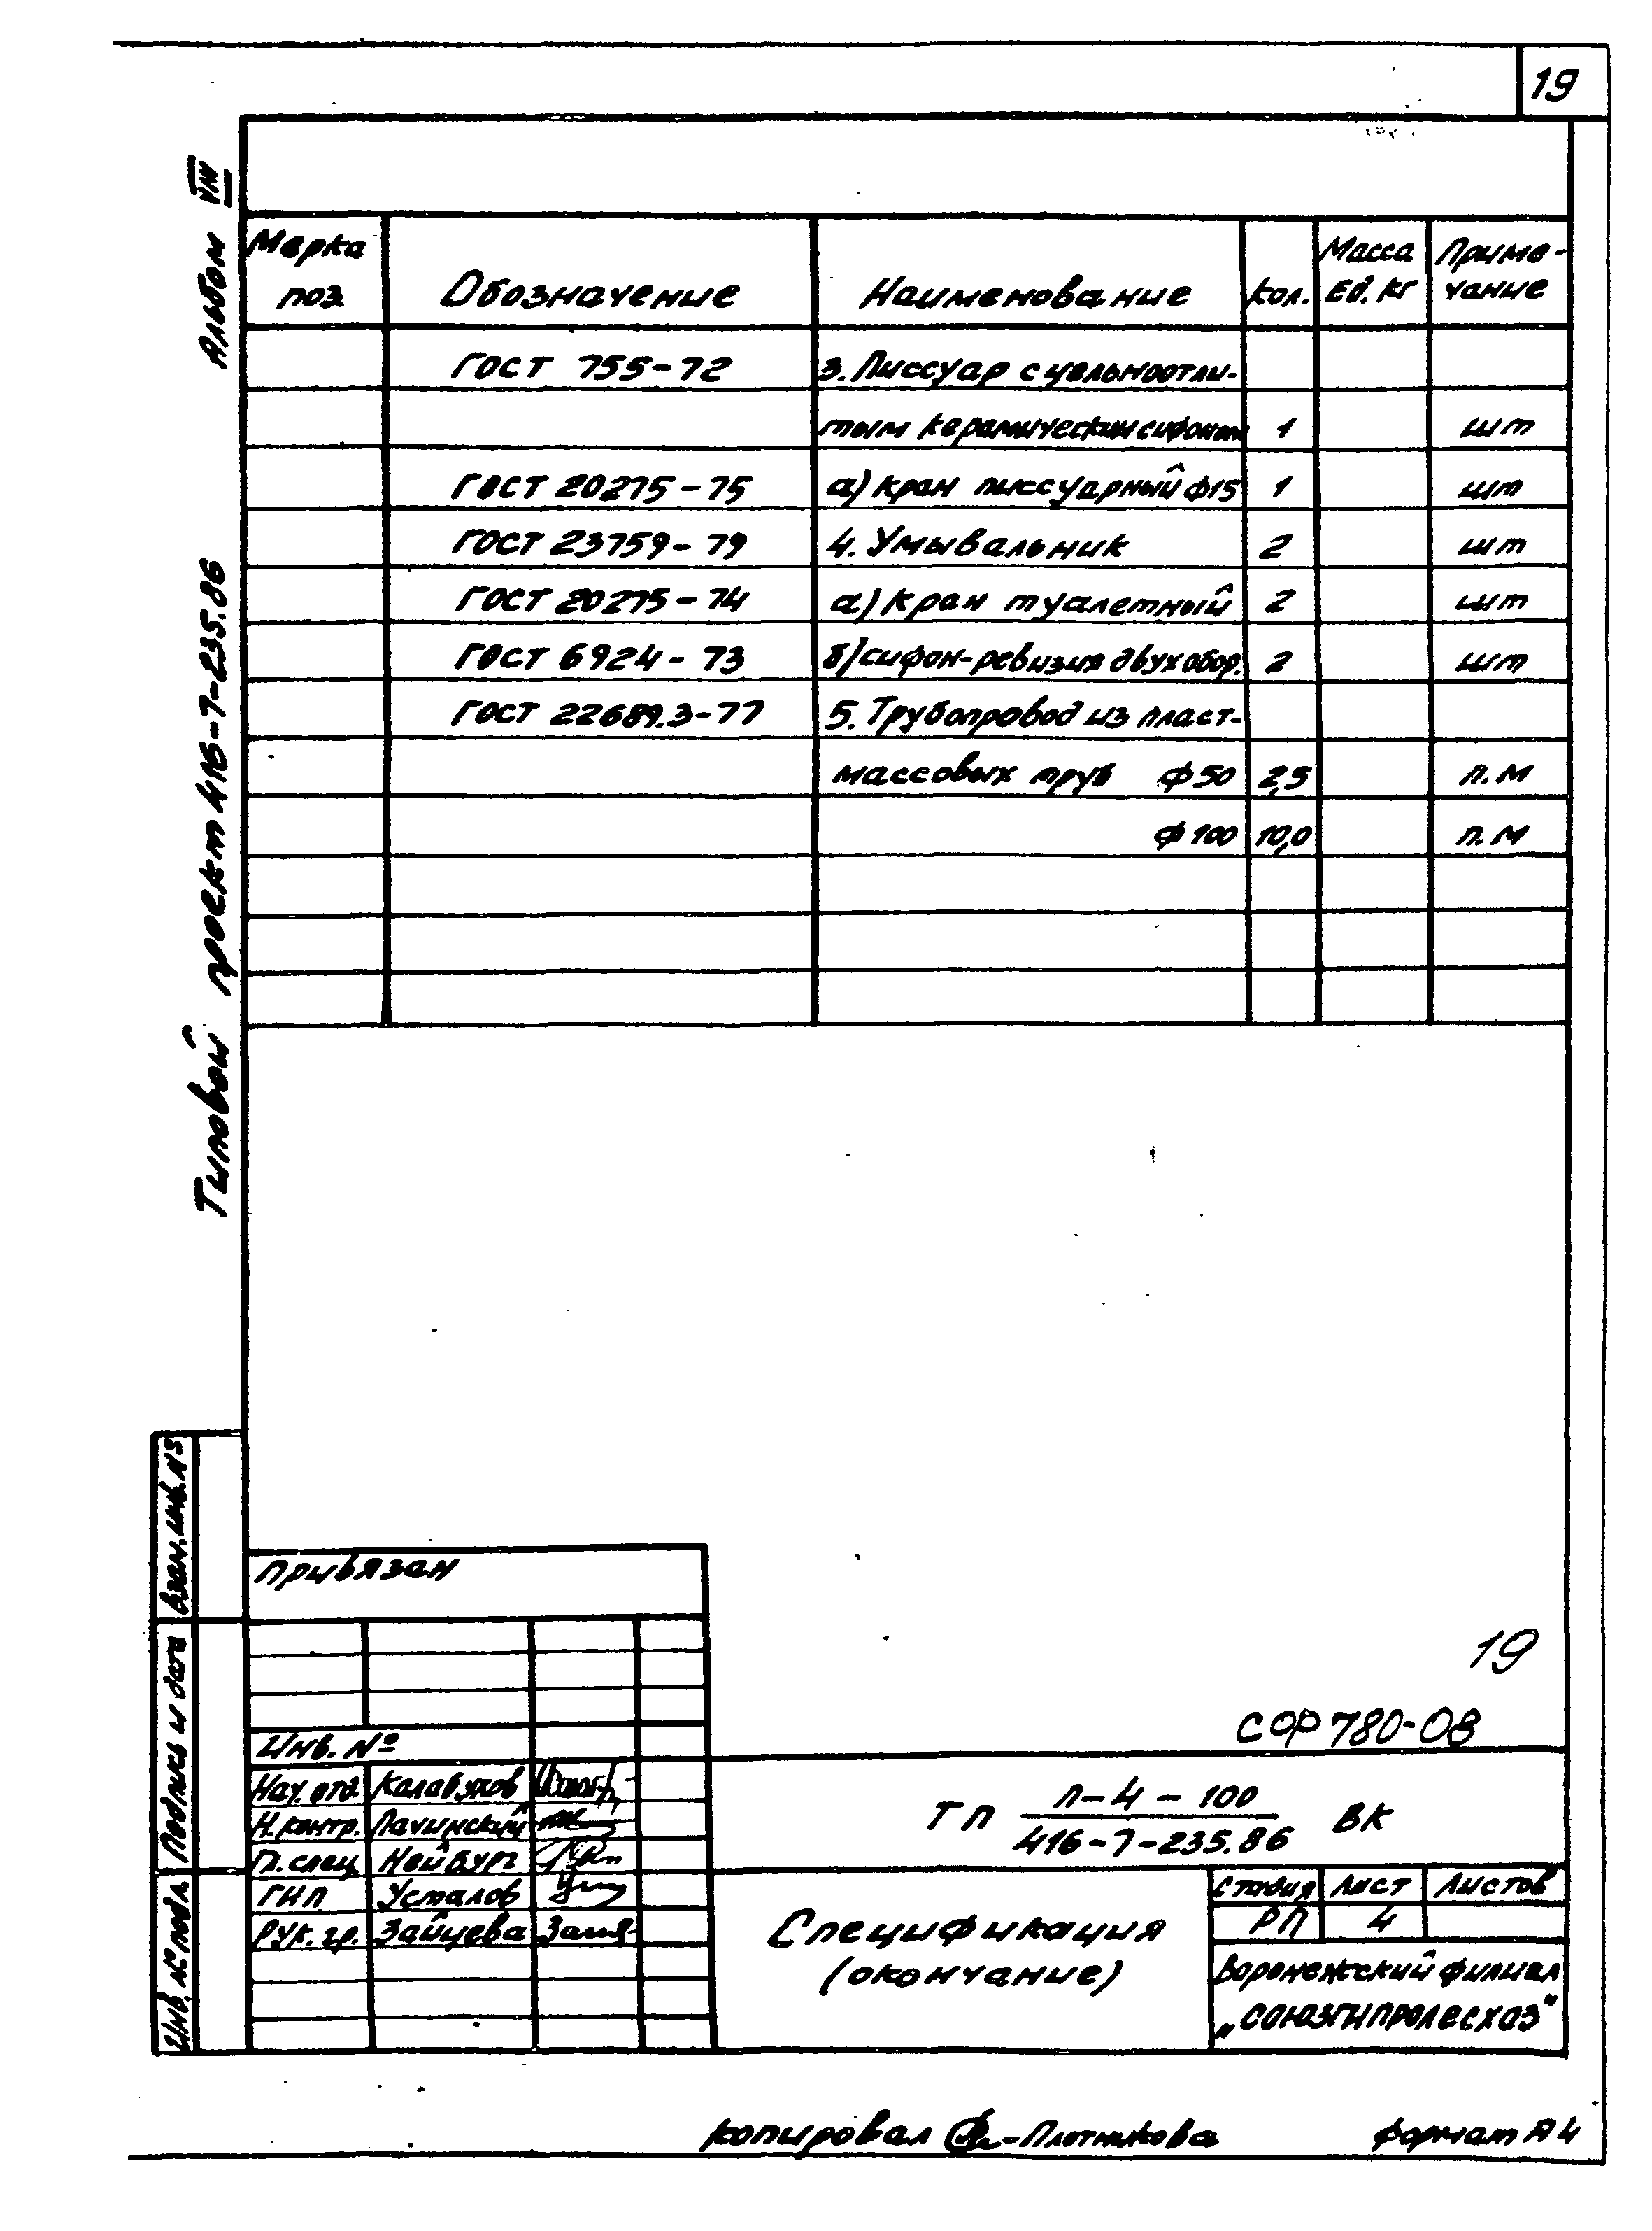 19
Альбом VIII
Типовой проект 416-7-235.86
Марка поз
Обозначение
Наименование
Кол.
Масса Ед. кг
Приме-чание
ГОСТ 755-72 3. Писсуар с цельноотли-
тым керамическим сифоном 1 шт
ГОСТ 20275-75 а) кран писсуарный ф15 1 шт
ГОСТ 23759-79 4. Умывальник 2 шт
ГОСТ 20275-74 а) кран туалетный 2 шт
ГОСТ 6924-73 б) сифон-ревизия двухобор. 2 шт
ГОСТ 22689.3-77 5. Трубопровод из пласт-
массовых труб ф50 2,5 п.м
ф100 10,0 п.м
Взам. инв. №
Подпись и дата
Инв. № подл.
Привязан
Инв. №
19
СОР 780-08
Нач. отд. Калавухов
Н. контр. Лачинский
Гл. спец. Нейбург
ГИП Усталов
Рук. гр. Зайцева
ТП Л-4-100 ВК
416-7-235.86
Спецификация
(окончание)
Стадия Лист Листов
РП 4
Воронежский филиал
„Союзгипролесхоз"
Копировал Плотникова
Формат А4